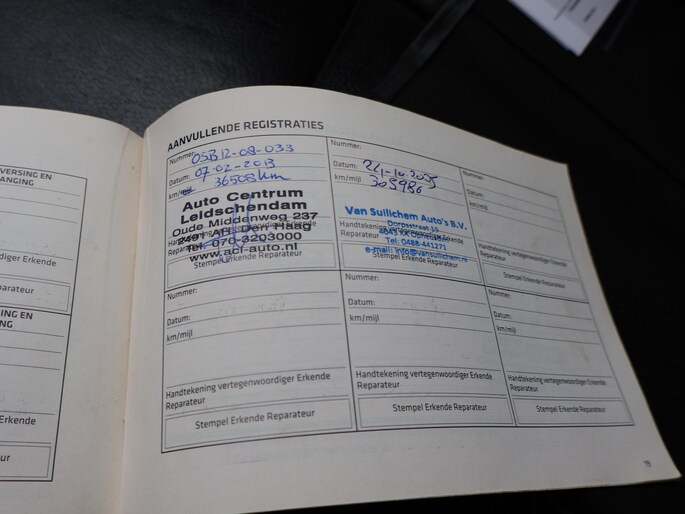 VERSING EN
ANGING
Erkende
parateur
ING EN
NG
Erkende
ur
AANVULLENDE REGISTRATIES
Nummer: OSB12-08-033
Datum: 07-02-2013
km/mijl 36508 km
Auto Centrum
Leidschendam
Oude Middenweg 237
2491 AH Den Haag
Tel. 070-3203000
www.acl-auto.nl
Stempel Erkende Reparateur
Nummer:
Datum:
km/mijl 305986
Van Suilichem Auto's B.V.
Dorpsstraat 15
Handtekening
Tel: 0488-441271
e-mail: info@vansuilichem.nl
Stempel Erkende Reparateur
Nummer:
Datum:
km/mijl
Handtekening vertegenwoordiger Erkende
Reparateur
Stempel Erkende Reparateur
Nummer:
Datum:
km/mijl
Handtekening vertegenwoordiger Erkende
Reparateur
Stempel Erkende Reparateur
Nummer:
Datum:
km/mijl
Handtekening vertegenwoordiger Erkende
Reparateur
Stempel Erkende Reparateur
Nummer:
Datum:
km/mijl
Handtekening vertegenwoordiger Erkende
Reparateur
Stempel Erkende Reparateur
19